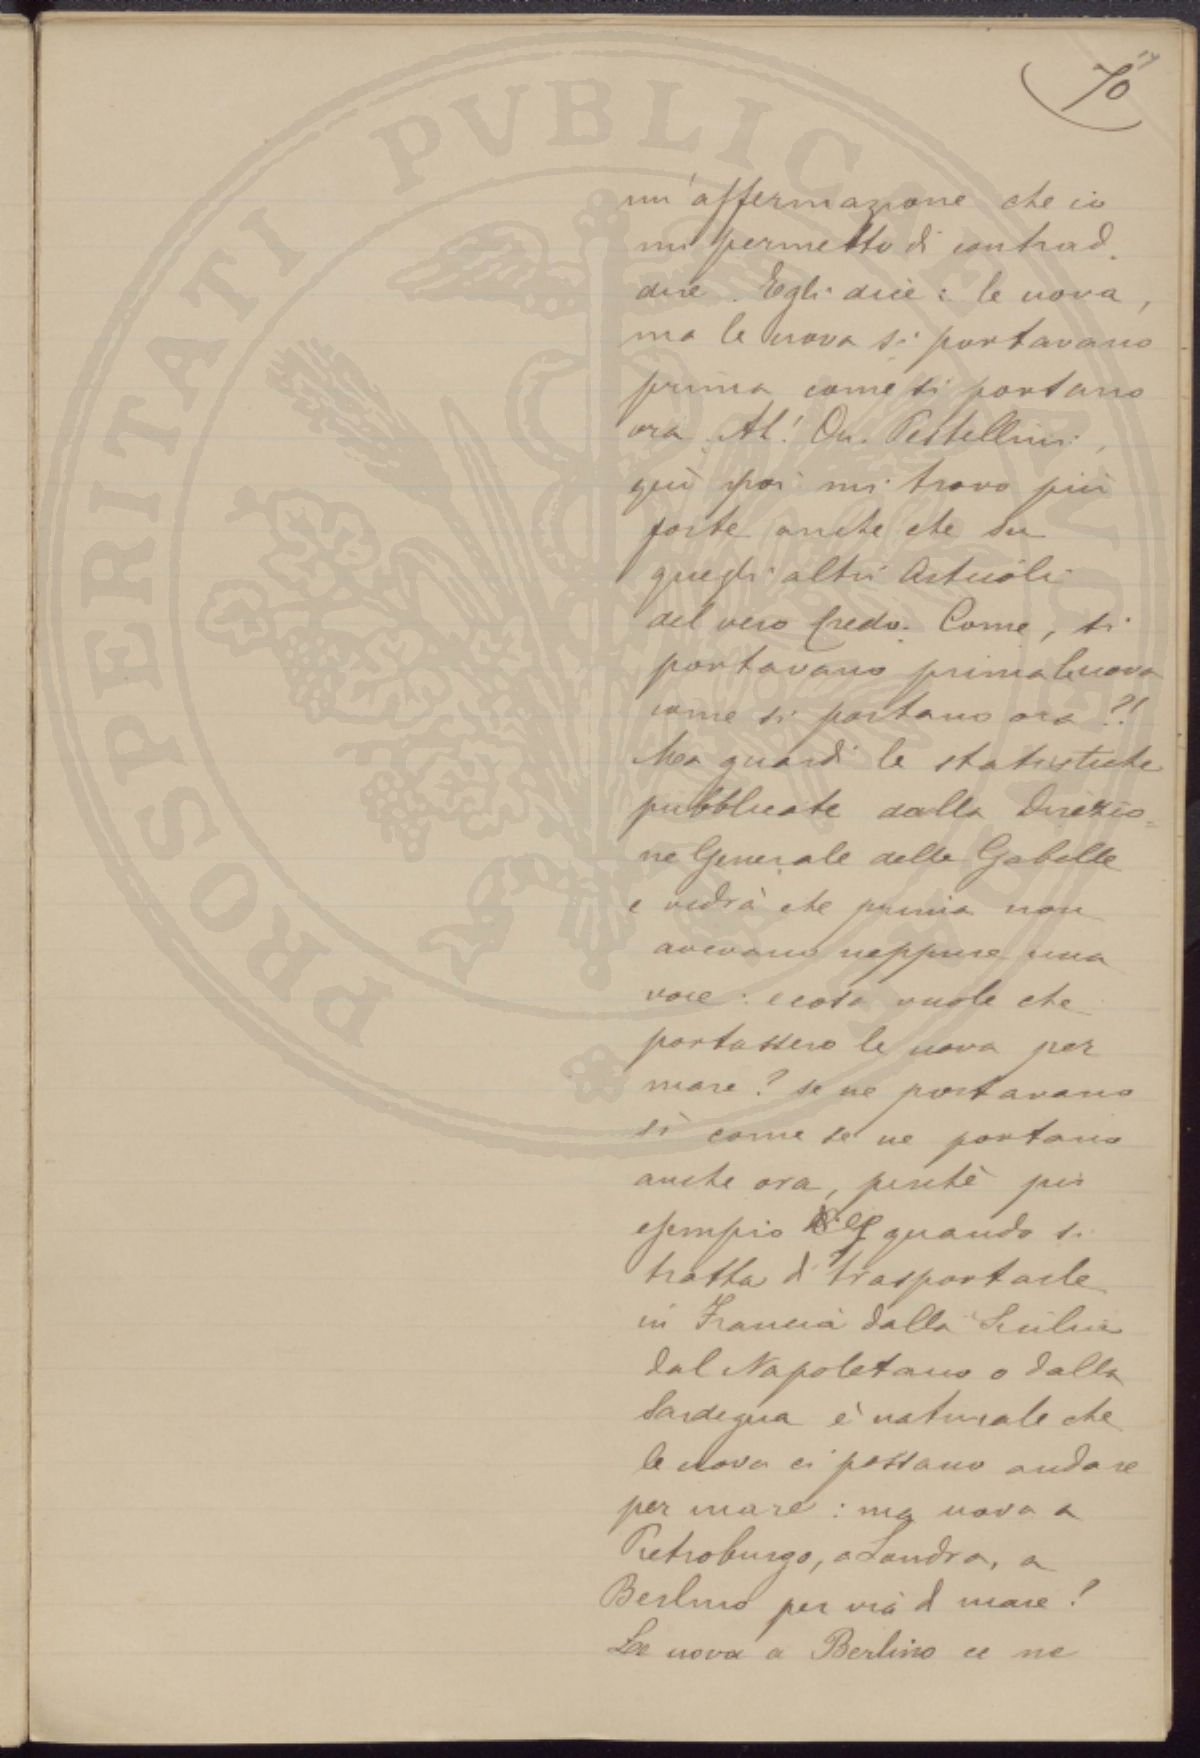 70
un'affermazione che io
mi permetto di contrad.
dire. Egli dice: le uova,
ma le uova si portavano
prima come si portano
ora. Ah! On. Pestellini,
quì poi mi trovo più
forte anche che su
quegli altri Articoli
del vero Credo. Come, si
portavano prima le uova
come si portano ora?!
Ma guardi le statistiche
pubblicate dalla Direzio=
ne Generale delle Gabelle
e vedrà che prima non
avevano neppure una
voce: e cosa vuole che
portassero le uova per
mare? se ne portavano
sì come se ne portano
anche ora, perchè per
esempio quando si
tratta di trasportarle
in Francia dalla Sicilia
dal Napoletano o dalla
Sardegna è naturale che
le uova ci possano andare
per mare: ma uova a
Pietroburgo, a Londra, a
Berlino per via d mare!
Le uova a Berlino ce ne
PROSPERITATI PVBLICAE